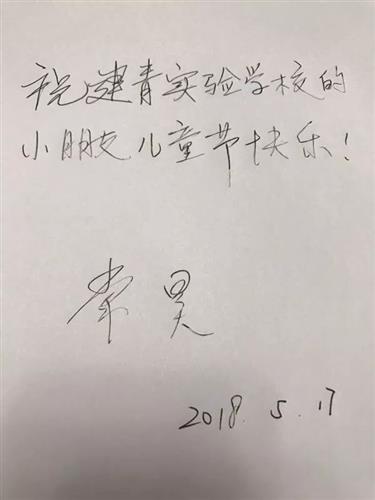 祝建青实验学校的
小朋友儿童节快乐！
常昊
2018.5.17